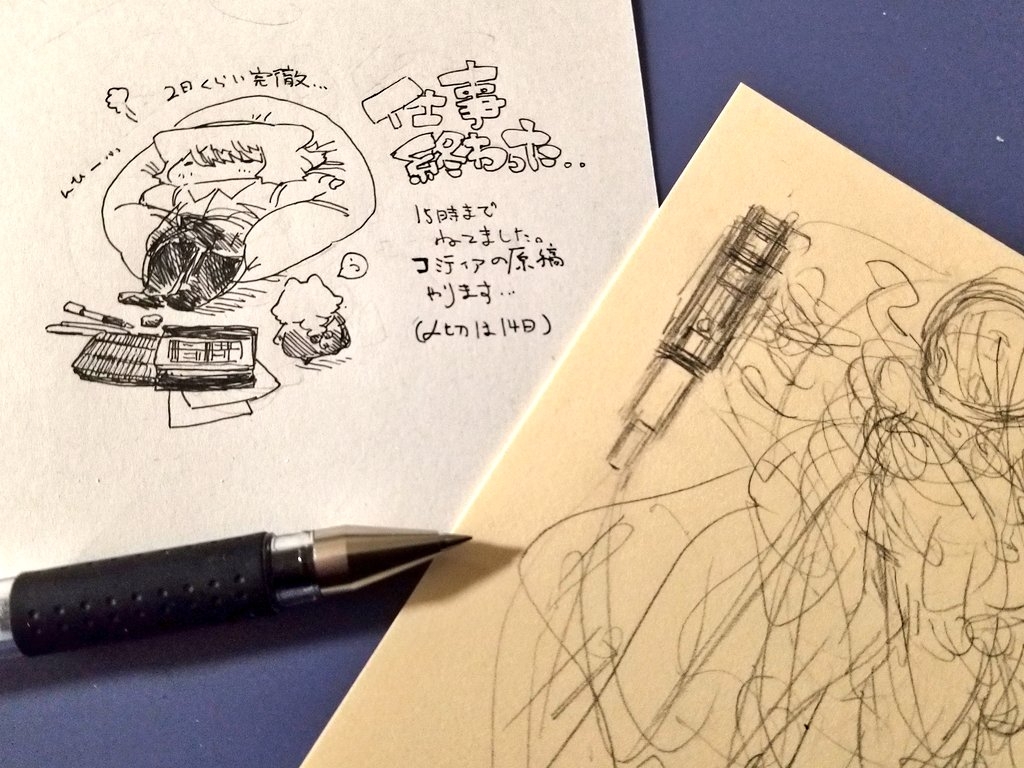 2日くらい完徹…
仕事
終わった..
15時まで
ねてました。
コミティアの原稿
やります…
(〆切は14日)